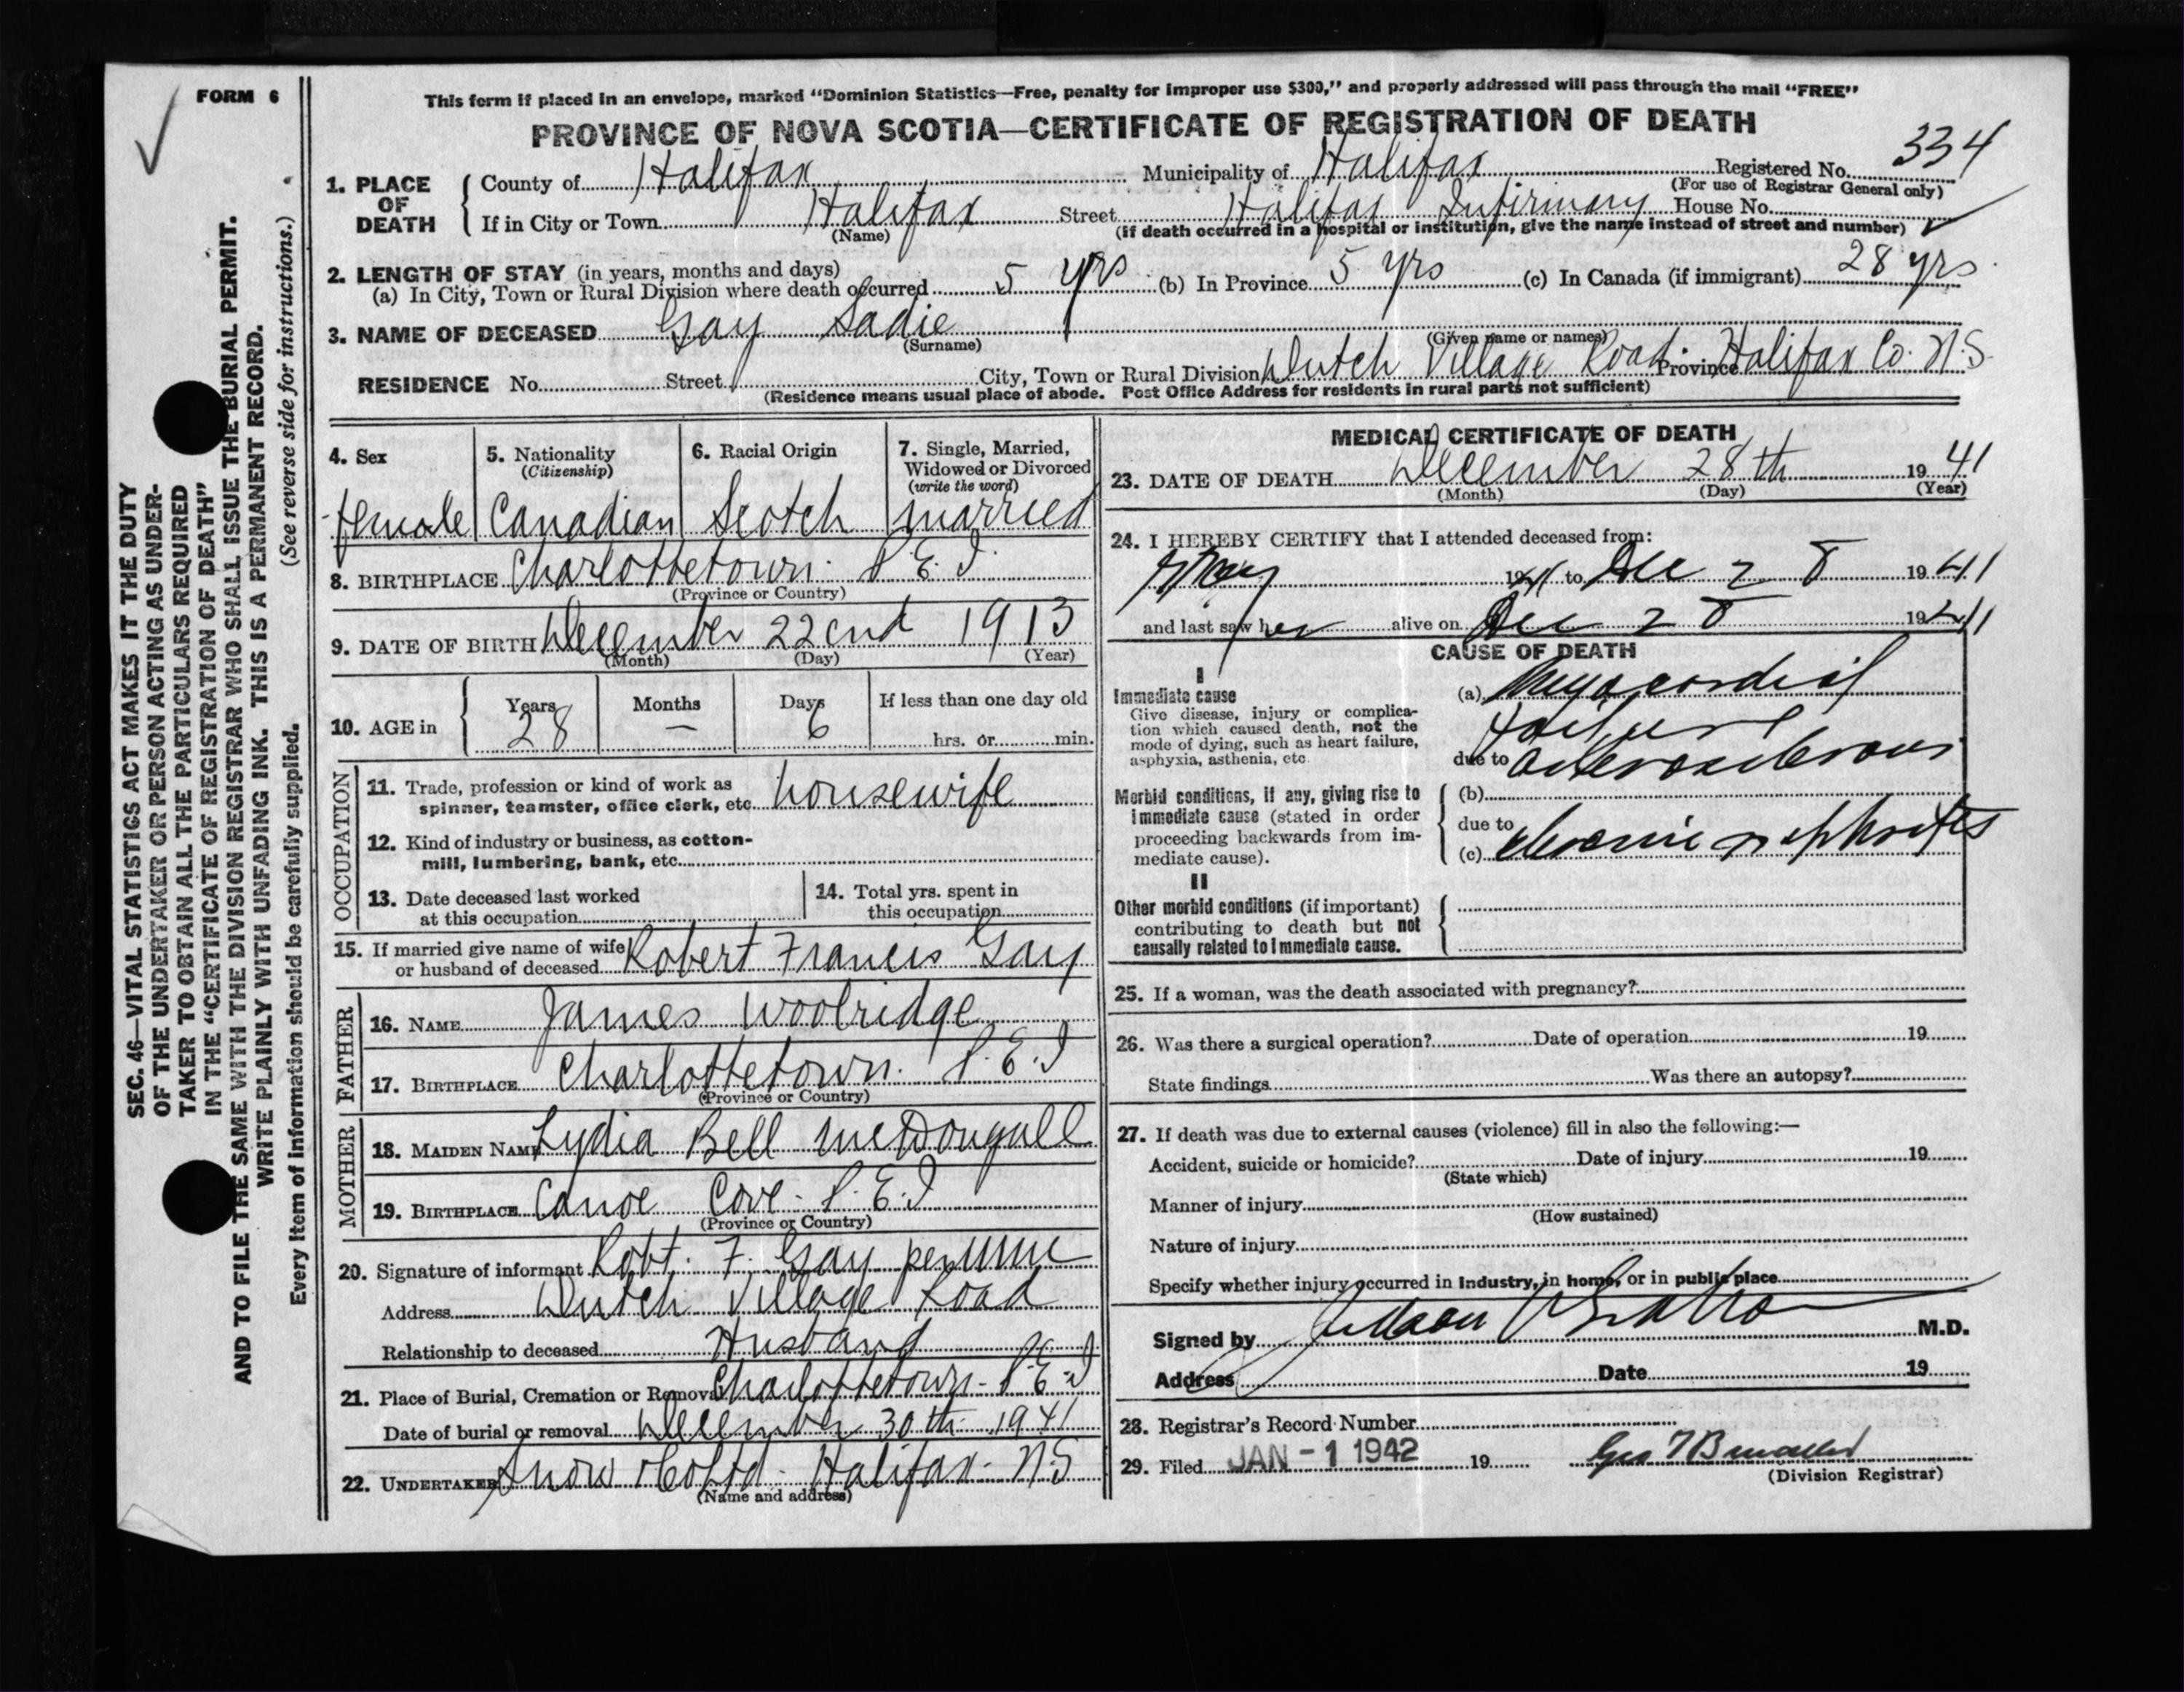 FORM 6
This form if placed in an envelope, marked "Dominion Statistics—Free, penalty for improper use $300," and properly addressed will pass through the mail "FREE"
PROVINCE OF NOVA SCOTIA—CERTIFICATE OF REGISTRATION OF DEATH
1. PLACE OF DEATH County of Halifax Municipality of Halifax Registered No. 334
(For use of Registrar General only)
If in City or Town Halifax Street Halifax Infirmary House No.
(Name) (if death occurred in a hospital or institution, give the name instead of street and number)
2. LENGTH OF STAY (in years, months and days)
(a) In City, Town or Rural Division where death occurred 5 yrs (b) In Province 5 yrs (c) In Canada (if immigrant) 28 yrs
3. NAME OF DECEASED Gay Sadie
(Surname) (Given name or names)
RESIDENCE No. Street City, Town or Rural Division Dutch Village Road. Province Halifax Co. N.S.
(Residence means usual place of abode. Post Office Address for residents in rural parts not sufficient)
4. Sex female
5. Nationality (Citizenship) Canadian
6. Racial Origin Scotch
7. Single, Married, Widowed or Divorced (write the word) married
8. BIRTHPLACE Charlottetown. P.E.I.
(Province or Country)
9. DATE OF BIRTH December 22cnd 1913
(Month) (Day) (Year)
10. AGE in Years 28 Months — Days 6 If less than one day old hrs. or min.
OCCUPATION
11. Trade, profession or kind of work as
spinner, teamster, office clerk, etc. housewife
12. Kind of industry or business, as cotton-
mill, lumbering, bank, etc.
13. Date deceased last worked
at this occupation
14. Total yrs. spent in
this occupation
15. If married give name of wife
or husband of deceased Robert Francis Gay
FATHER
16. NAME James Woolridge
17. BIRTHPLACE Charlottetown. P.E.I
(Province or Country)
MOTHER
18. MAIDEN NAME Lydia Bell McDougall
19. BIRTHPLACE Canoe Cove. P.E.I
(Province or Country)
20. Signature of informant Robt. F. Gay per
Address Dutch Village Road
Relationship to deceased Husband
21. Place of Burial, Cremation or Removal Charlottetown - P.E.I
Date of burial or removal December 30th 1941
22. UNDERTAKER Snow & Co Ltd - Halifax - N.S
(Name and address)
MEDICAL CERTIFICATE OF DEATH
23. DATE OF DEATH December 28th 1941
(Month) (Day) (Year)
24. I HEREBY CERTIFY that I attended deceased from:
1941 to Dec 28 1941
and last saw her alive on Dec 28 1941
CAUSE OF DEATH
I
Immediate cause
Give disease, injury or complica-
tion which caused death, not the
mode of dying, such as heart failure,
asphyxia, asthenia, etc
(a) Myocardial
failure
due to
Morbid conditions, if any, giving rise to
immediate cause (stated in order
proceeding backwards from im-
mediate cause).
(b)
due to
(c) chronic nephritis
II
Other morbid conditions (if important)
contributing to death but not
causally related to immediate cause.
25. If a woman, was the death associated with pregnancy?
26. Was there a surgical operation? Date of operation 19
State findings Was there an autopsy?
27. If death was due to external causes (violence) fill in also the following:—
Accident, suicide or homicide? Date of injury 19
(State which)
Manner of injury
(How sustained)
Nature of injury
Specify whether injury occurred in industry, in home, or in public place
Signed by M.D.
Address Date 19
28. Registrar's Record Number
29. Filed JAN - 1 1942 19
(Division Registrar)
SEC. 46—VITAL STATISTICS ACT MAKES IT THE DUTY
OF THE UNDERTAKER OR PERSON ACTING AS UNDER-
TAKER TO OBTAIN ALL THE PARTICULARS REQUIRED
IN THE "CERTIFICATE OF REGISTRATION OF DEATH"
AND TO FILE THE SAME WITH THE DIVISION REGISTRAR WHO SHALL ISSUE THE BURIAL PERMIT.
WRITE PLAINLY WITH UNFADING INK. THIS IS A PERMANENT RECORD.
Every item of information should be carefully supplied. (See reverse side for instructions.)